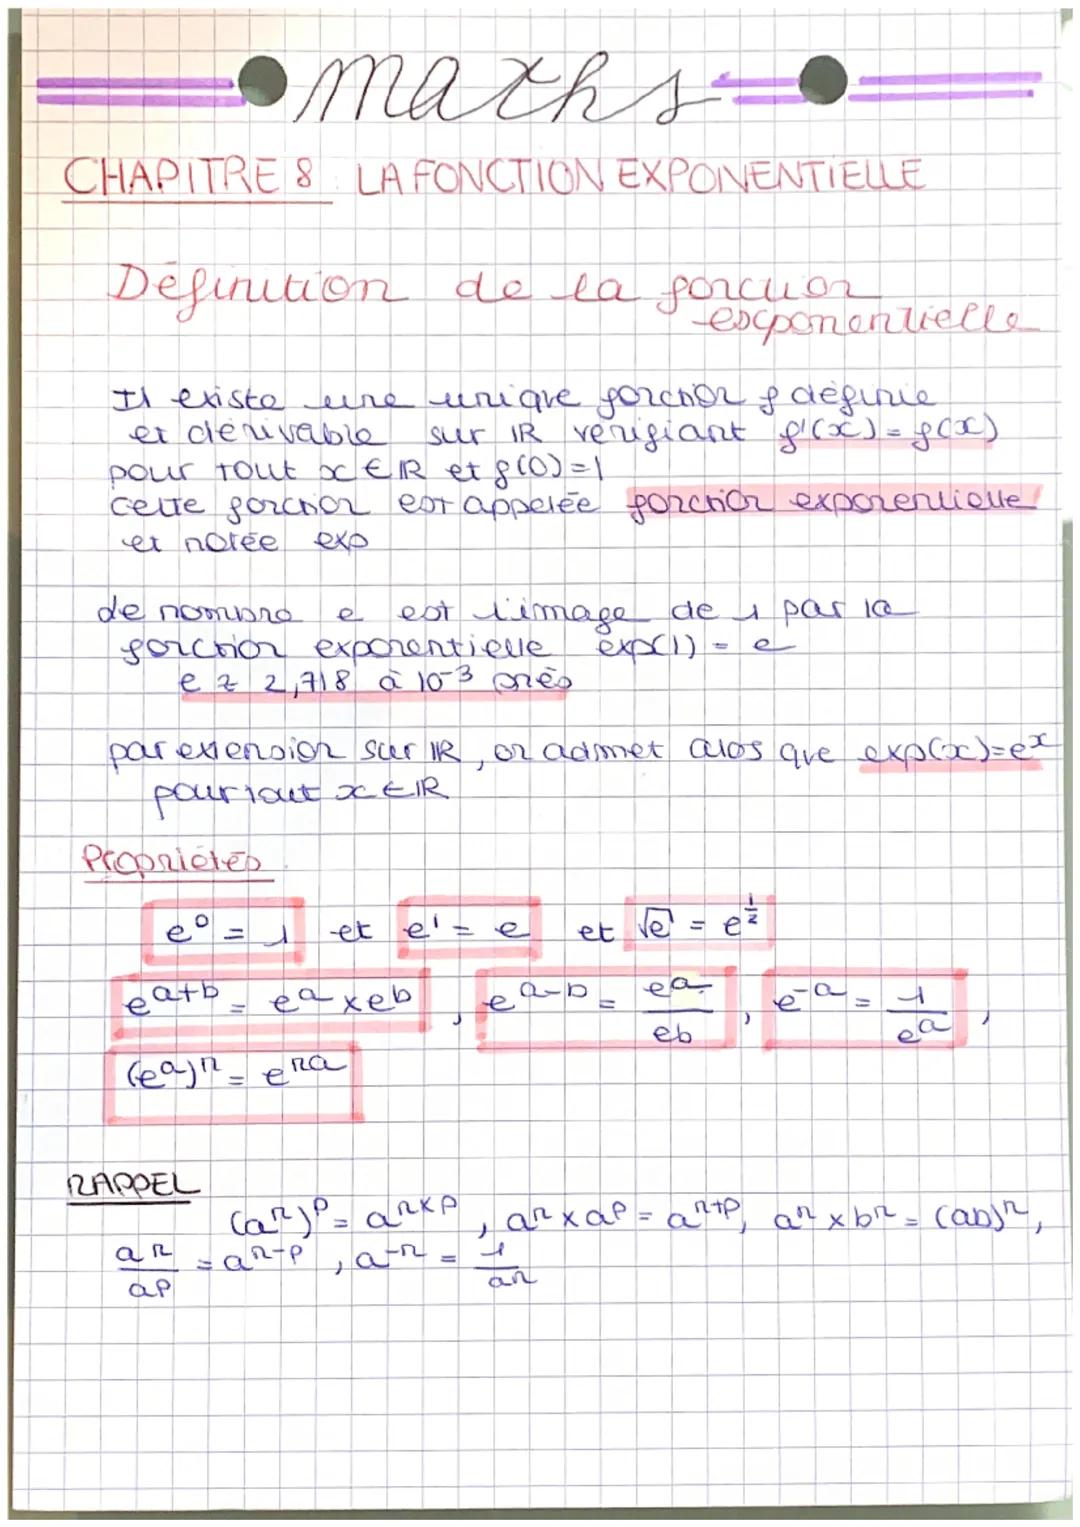 maths
CHAPITRE 8 LA FONCTION EXPONENTIELLE
Définition de la fonction
exponentielle
Il existe une unique fonction f définie
et dérivable sur ℝ vérifiant f'(x) = f(x)
pour tout x ∈ ℝ et f(0) = 1
Cette fonction est appelée fonction exponentielle
et notée exp
de nombre e est l'image de 1 par la
fonction exponentielle exp(1) = e
e ≈ 2,718 à 10⁻³ près
par extension sur ℝ, on admet alos que exp(x) = eˣ
pour tout x ∈ ℝ
Propriétés
e⁰ = 1 et e¹ = e et √e = e^(1/2)
e^(a+b) = e^a × e^b , e^(a-b) = e^a / e^b , e^(-a) = 1 / e^a ,
(e^a)^n = e^(na)
RAPPEL
(a^n)^p = a^(n×p) , a^n × a^p = a^(n+p), a^n × b^n = (ab)^n,
a^n / a^p = a^(n-p) , a^(-n) = 1 / a^n